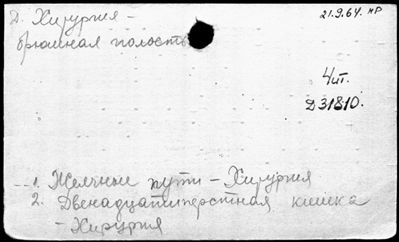 2. Хирургия -
брюшная полость
21.9.64. нр
4 шт.
Д 31810.
1. Желчные пути - Хирургия
2. Двенадцатиперстная кишка
- Хирургия